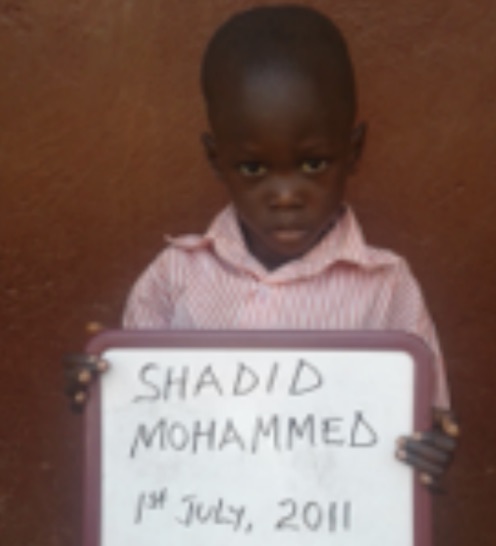 SHADID
MOHAMMED
1st JULY, 2011